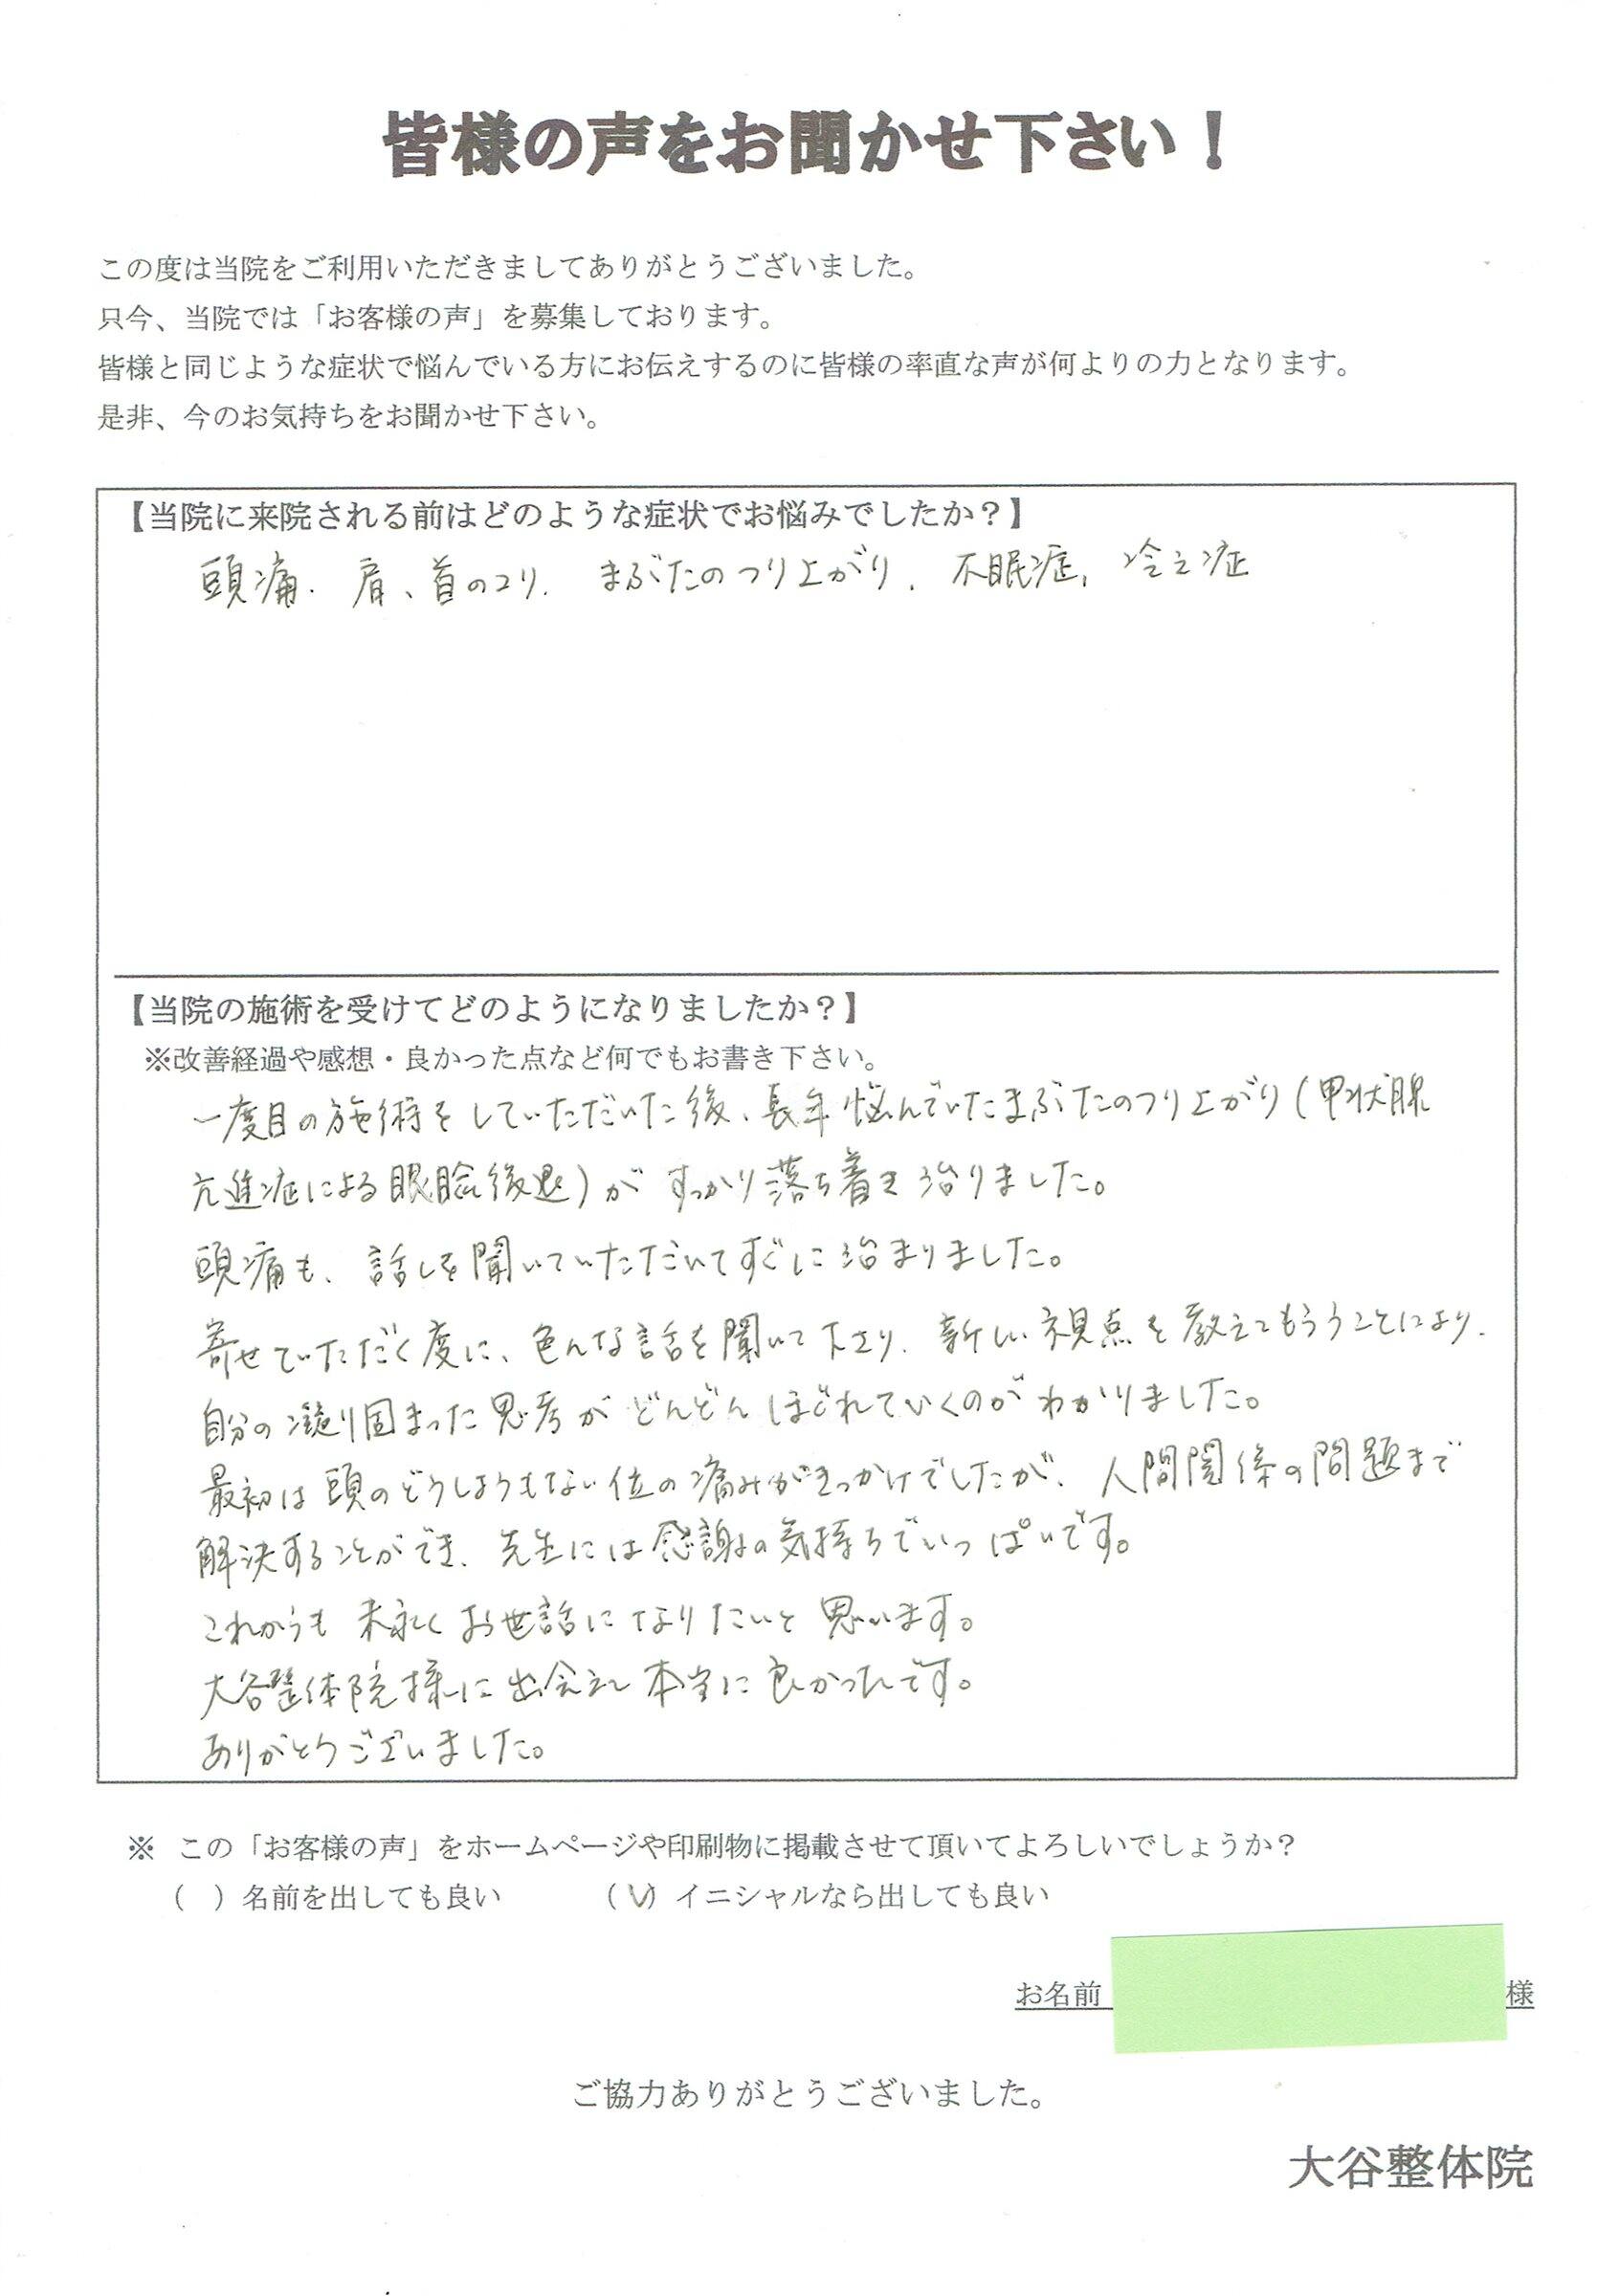 皆様の声をお聞かせ下さい！
この度は当院をご利用いただきましてありがとうございました。
只今、当院では「お客様の声」を募集しております。
皆様と同じような症状で悩んでいる方にお伝えするのに皆様の率直な声が何よりの力となります。
是非、今のお気持ちをお聞かせ下さい。
【当院に来院される前はどのような症状でお悩みでしたか？】
頭痛、肩、首のコリ、まぶたのつり上がり、不眠症、冷え症
【当院の施術を受けてどのようになりましたか？】
※改善経過や感想・良かった点など何でもお書き下さい。
一度目の施術をしていただいた後、長年悩んでいたまぶたのつり上がり（甲状腺
亢進症による眼瞼後退）がすっかり落ち着き治りました。
頭痛も、話しを聞いていただいてすぐに治まりました。
寄せていただく度に、色んな話を聞いて下さり、新しい視点を教えてもらうことにより、
自分の凝り固まった思考がどんどんほぐれていくのがわかりました。
最初は頭のどうしようもない位の痛みがきっかけでしたが、人間関係の問題まで
解決することができ、先生には感謝の気持ちでいっぱいです。
これからも末永くお世話になりたいと思います。
大谷整体院様に出会えて本当に良かったです。
ありがとうございました。
※ この「お客様の声」をホームページや印刷物に掲載させて頂いてよろしいでしょうか？
（ ）名前を出しても良い （✓）イニシャルなら出しても良い
お名前 様
ご協力ありがとうございました。
大谷整体院